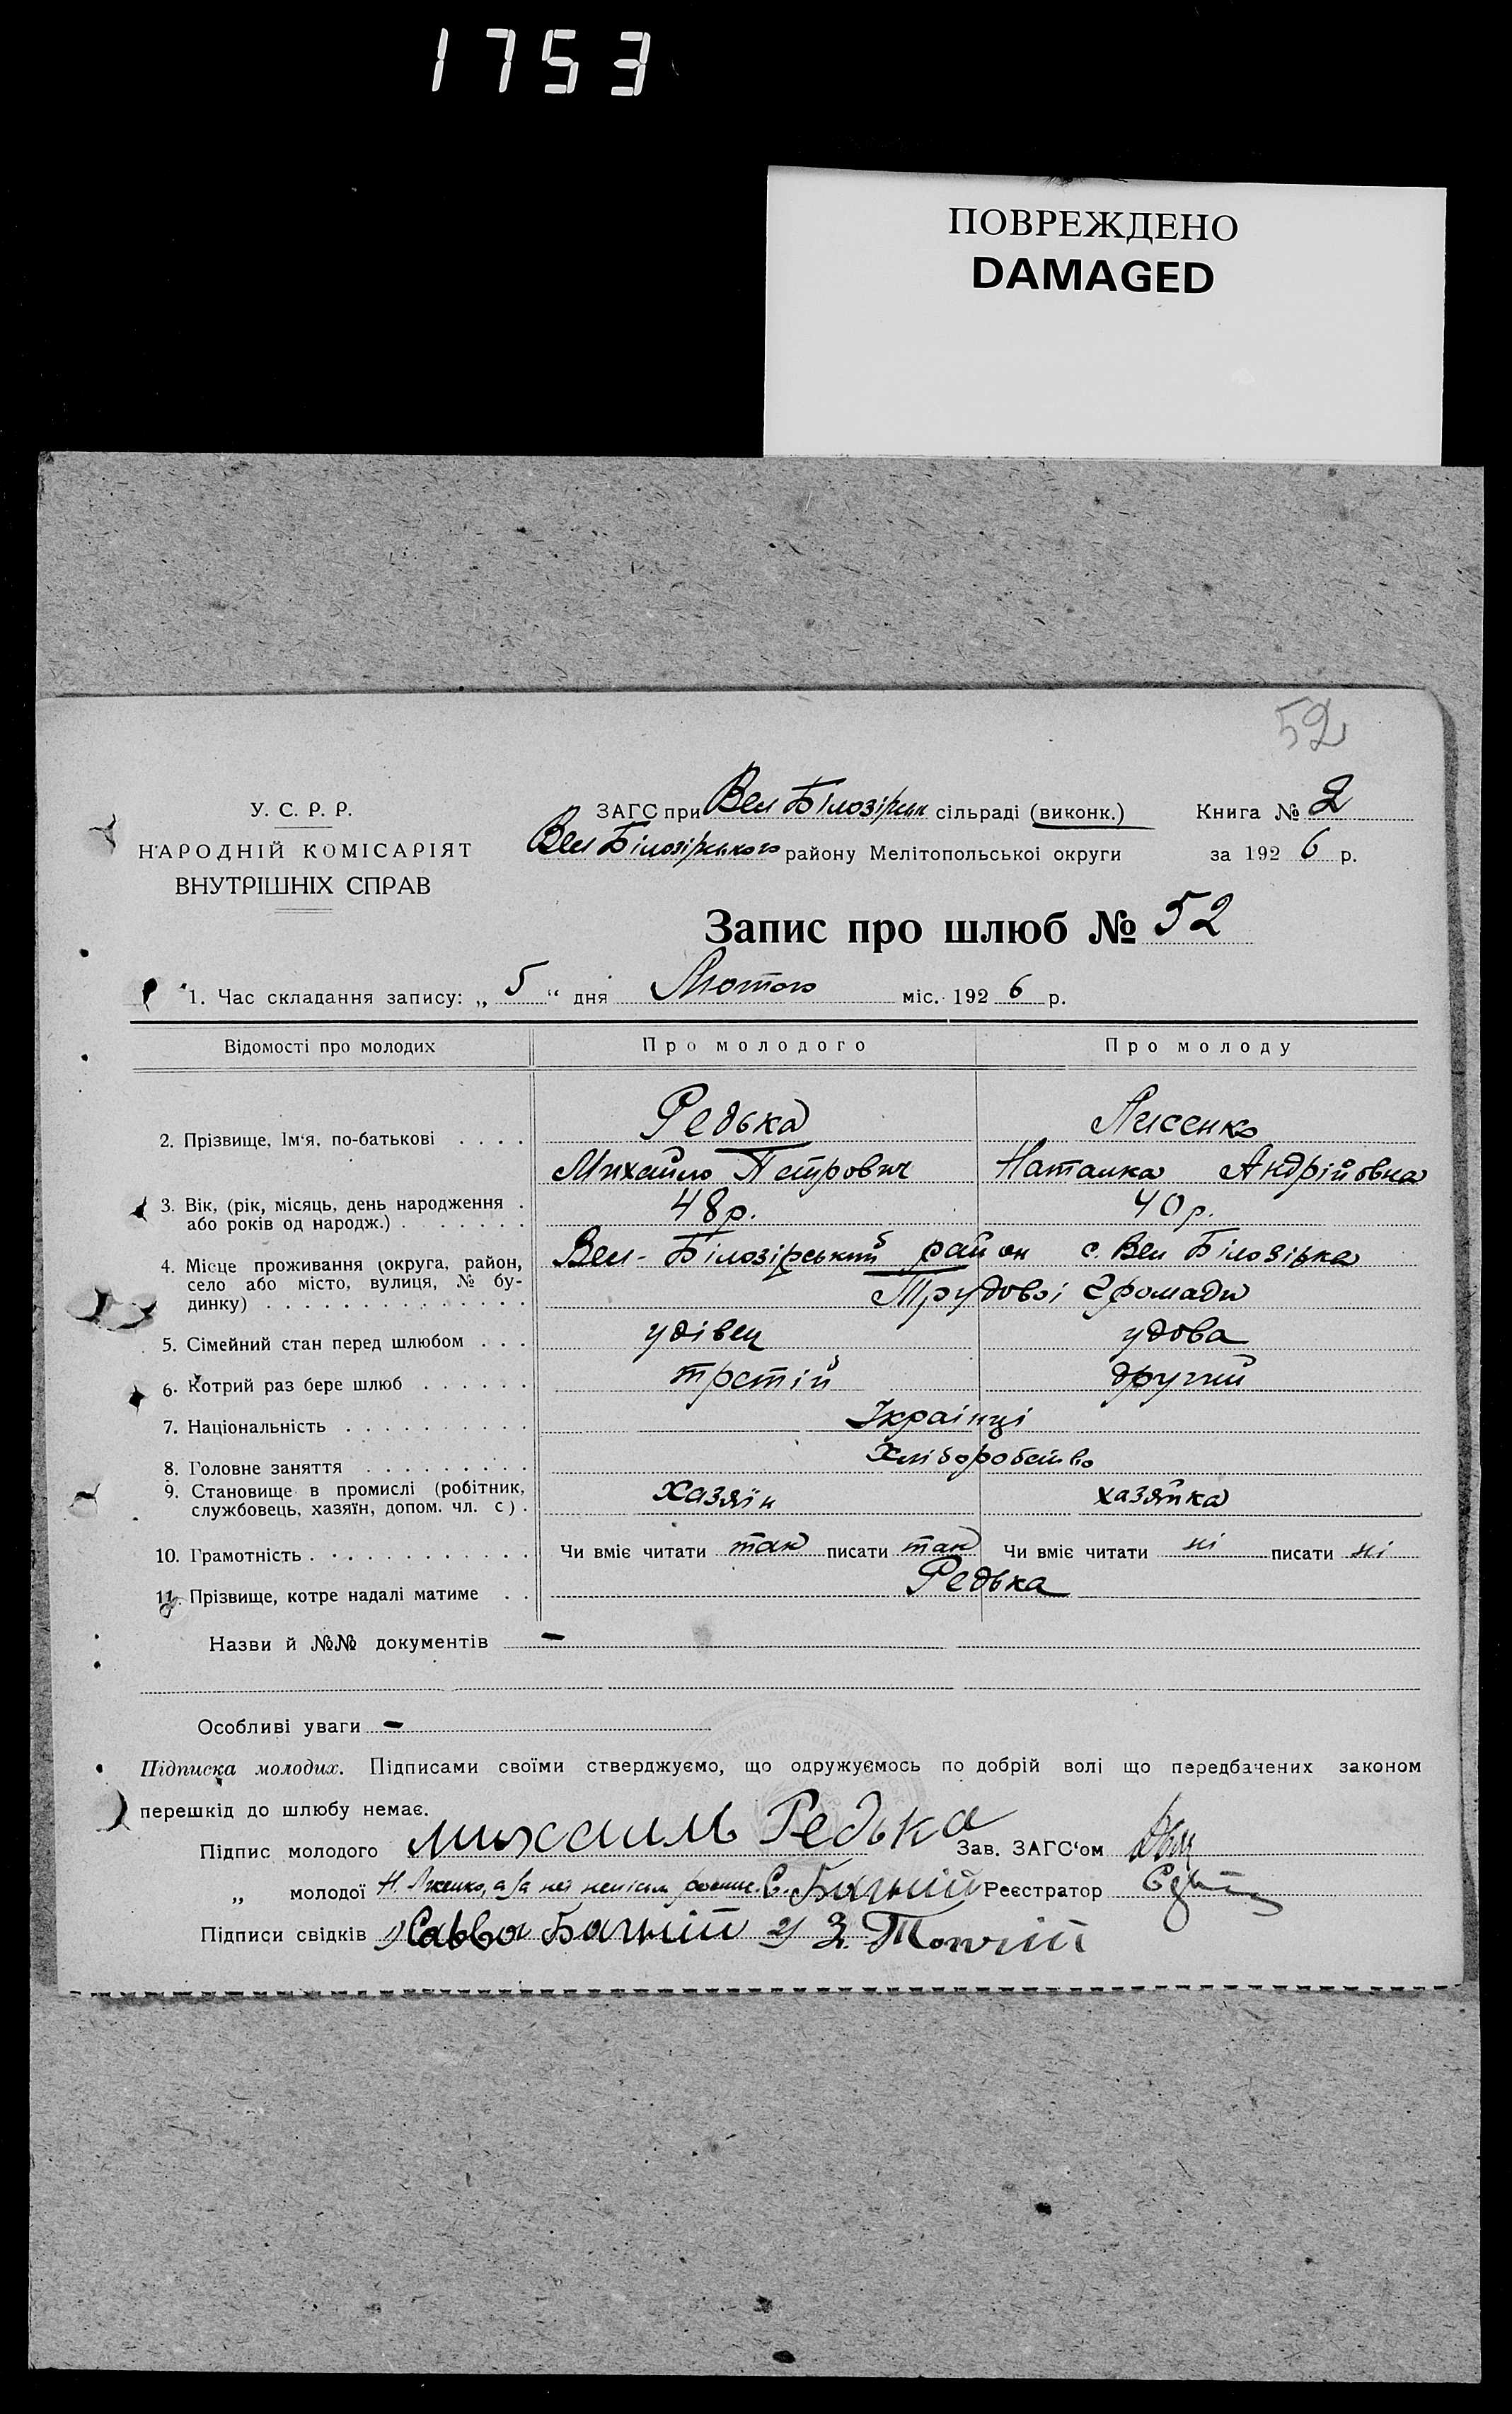 1753
ПОВРЕЖДЕНО
DAMAGED
52
У. С. Р. Р.
НАРОДНІЙ КОМІСАРІЯТ
ВНУТРІШНІХ СПРАВ
ЗАГС при Вел Білозірськ сільраді (виконк.) Книга № 2
Вел Білозірського району Мелітопольської округи за 192 6 р.
Запис про шлюб № 52
1. Час складання запису: „ 5 “ дня Лютого міс. 192 6 р.
Відомості про молодих Про молодого Про молоду
Редька Лисенко
2. Прізвище, Ім‘я, по-батькові . . . .
Михайло Петрович Наталка Андрійовна
3. Вік, (рік, місяць, день народження .
або років од народж.) . . . . . . . 48 р. 40 р.
4. Місце проживання (округа, район,
село або місто, вулиця, № бу-
динку) . . . . . . . . . . . . . .
Вел-Білозірський район с. Вел Білозірка
Трудової Громади
5. Сімейний стан перед шлюбом . . . удівец удова
6. Котрий раз бере шлюб . . . . . . третій другий
7. Національність . . . . . . . . . . Українці
8. Головне заняття . . . . . . . . . Хліборобство
9. Становище в промислі (робітник,
службовець, хазяїн, допом. чл. с) . хазяїн хазяйка
10. Грамотність . . . . . . . . . . . . Чи вміє читати так писати так Чи вміє читати ні писати ні
11. Прізвище, котре надалі матиме . . Редька
Назви й №№ документів –
Особливі уваги –
Підписка молодих. Підписами своїми стверджуємо, що одружуємось по добрій волі що передбачених законом
перешкід до шлюбу немає.
Підпис молодого Михаиль Редька Зав. ЗАГС‘ом
„ молодої Н. Лисенко, а за неї С. Багній Реєстратор
Підписи свідків 1) Савва Багній 2) З.